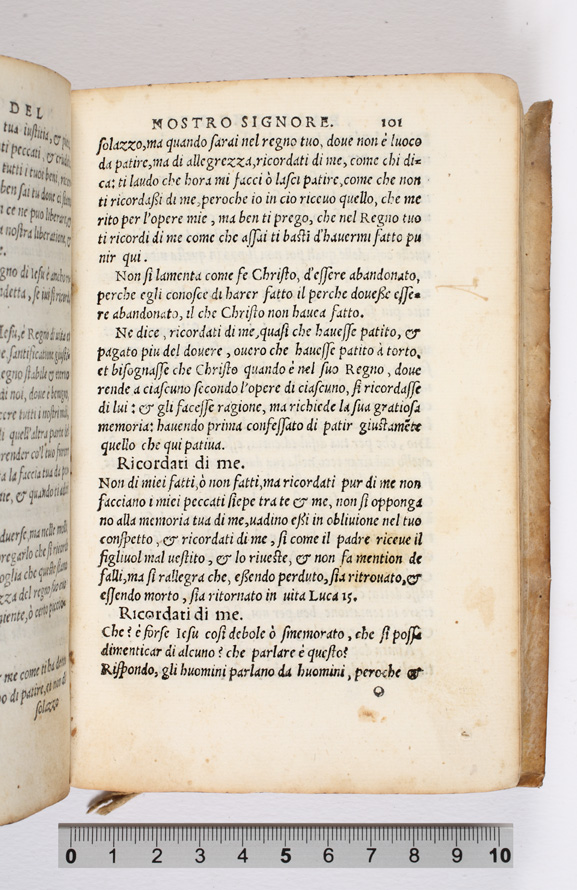 DEL
tua iustitia, &
ti peccati, &
tutti i tuoi beni,
ben sai tu doue
a nostra liberatione,
e.
gno di Iesu è
Iesu, è Regno di uita
me, santificatione
egno stabile &
di noi, doue è benigno,
cere tutti i nostri
li quell'altra parte
render co'l tuo
a la faccia tua da
ne, & quando ti
duerse, ma nelle
pregarlo che si ricordi
oglia che questo
zza del regno suo
stente, ò certo
r me come ti ha detto
po di patire, et non di
solazzo
NOSTRO SIGNORE. 101
solazzo, ma quando sarai nel regno tuo, doue non è luoco
da patire, ma di allegrezza, ricordati di me, come chi di=
ca: ti laudo che hora mi facci ò lasci patire, come che non
ti ricordaßi di me, peroche io in cio riceuo quello, che me
rito per l'opere mie, ma ben ti prego, che nel Regno tuo
ti ricordi di me come che assai ti basti d'hauermi fatto pu
nir qui.
Non si lamenta come fe Christo, d'essere abandonato,
perche egli conosce di hauer fatto il perche doueße esse=
re abandonato, il che Christo non hauea fatto.
Ne dice, ricordati di me, quasi che hauesse patito, &
pagato piu del douere, ouero che hauesse patito à torto,
et bisognasse che Christo quando è nel suo Regno, doue
rende a ciascuno secondo l'opere di ciascuno, si ricordasse
di lui: & gli facesse ragione, ma richiede la sua gratiosa
memoria: hauendo prima confessato di patir giustamẽte
quello che qui patiua.
Ricordati di me.
Non di miei fatti, ò non fatti, ma ricordati pur di me non
facciano i miei peccati siepe tra te & me, non si opponga
no alla memoria tua di me, uadino eßi in obliuione nel tuo
conspetto, & ricordati di me, si come il padre riceue il
figliuol mal uestito, & lo riueste, & non fa mention de
falli, ma si rallegra che, eßendo perduto, sia ritrouato, &
essendo morto, sia ritornato in uita Luca 15.
Ricordati di me.
Che? è forse Iesu così debole ò smemorato, che si possa
dimenticar di alcuno? che parlare è questo?
Rispondo, gli huomini parlano da huomini, peroche &
O
0 1 2 3 4 5 6 7 8 9 10